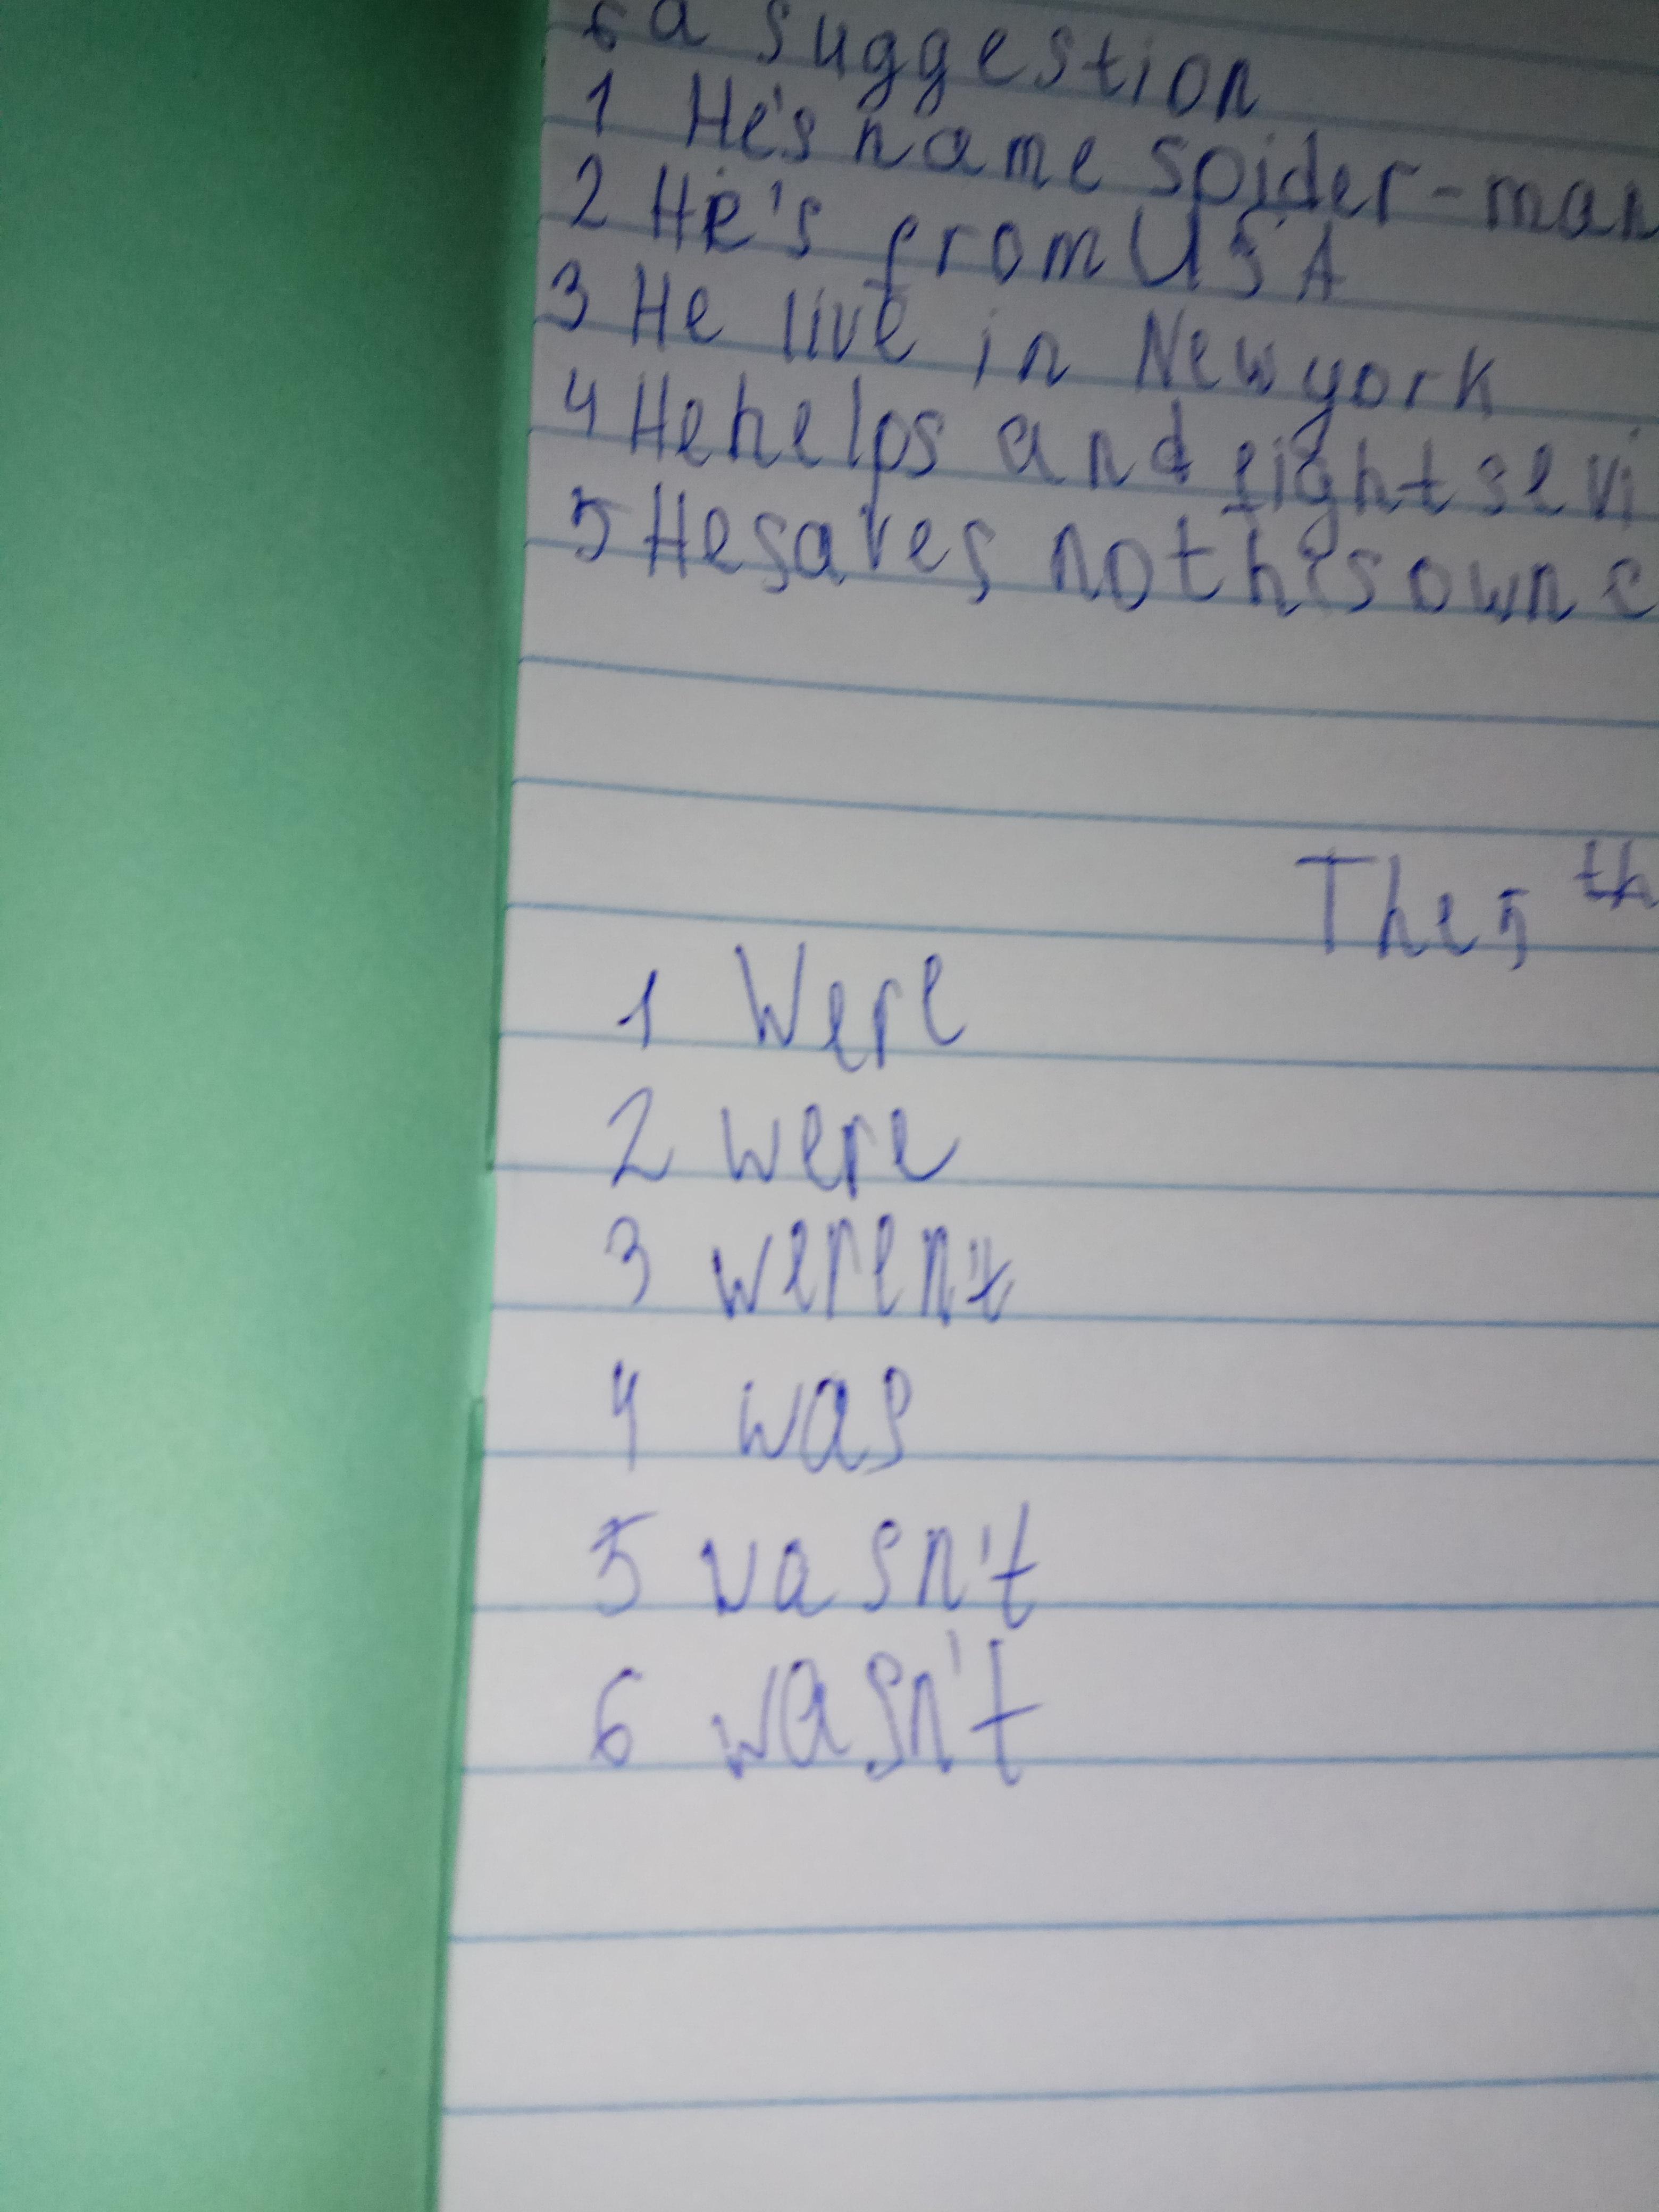 6 a suggestion
1 He's name spider-man
2 He's from USA
3 He live in New york
4 He helps and fights evi
5 He saves not his own c
The 5 th
1 Were
2 were
3 weren't
4 was
5 wasn't
6 wasn't